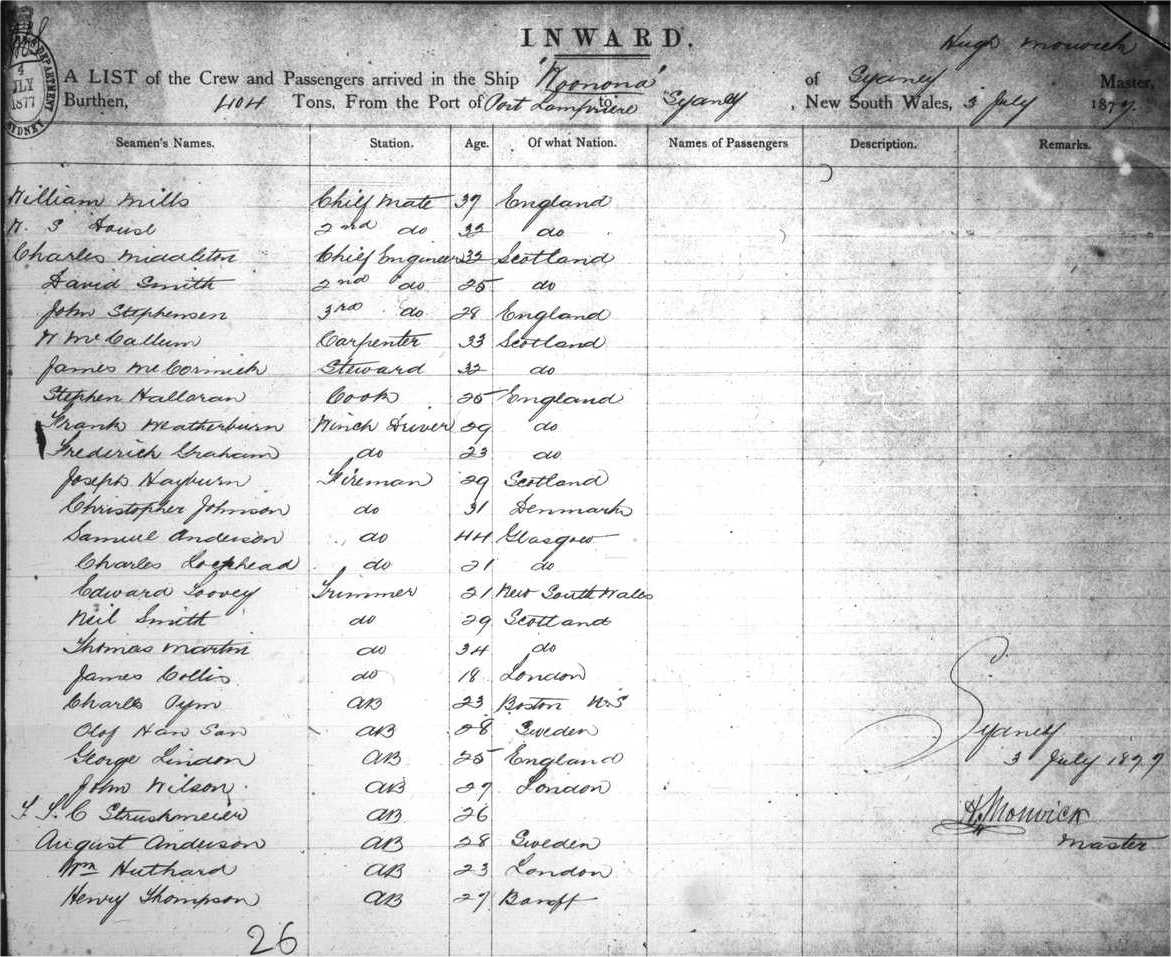 INWARD.
Hugh Monwick
A LIST of the Crew and Passengers arrived in the Ship 'Koonona' of Sydney Master,
Burthen, 404 Tons, From the Port of Port Lampriere to Sydney, New South Wales, 3 July 1877.
4 JLY 1877
DEPARTMENT SYDNEY
Seamen's Names. Station. Age. Of what Nation. Names of Passengers Description. Remarks.
William Mills Chief Mate 37 England
W. S House 2nd do 32 do
Charles Middleton Chief Engineer 32 Scotland
David Smith 2nd do 25 do
John Stephensen 3rd do 28 England
W McCallum Carpenter 33 Scotland
James McCormick Steward 32 do
Stephen Halloran Cook 25 England
Frank Weatherburn Winch Driver 29 do
Frederick Graham do 23 do
Joseph Hayburn Fireman 29 Scotland
Christopher Johnson do 31 Denmark
Samuel Anderson do 44 Glasgow
Charles Lochhead do 21 do
Edward Toovey Trimmer 21 New South Wales
Neil Smith do 29 Scotland
Thomas Martin do 34 do
James Collis do 18 London
Charles Pym AB 23 Boston US
Olof Han San AB 28 Sweden
George Lindon AB 25 England
John Wilson AB 27 London
T. T. C Struskmeier AB 26
August Anderson AB 28 Sweden
Wm Huthard AB 23 London
Henry Thompson AB 27 Banff
Sydney
3 July 1877
H. Monwick
Master
26